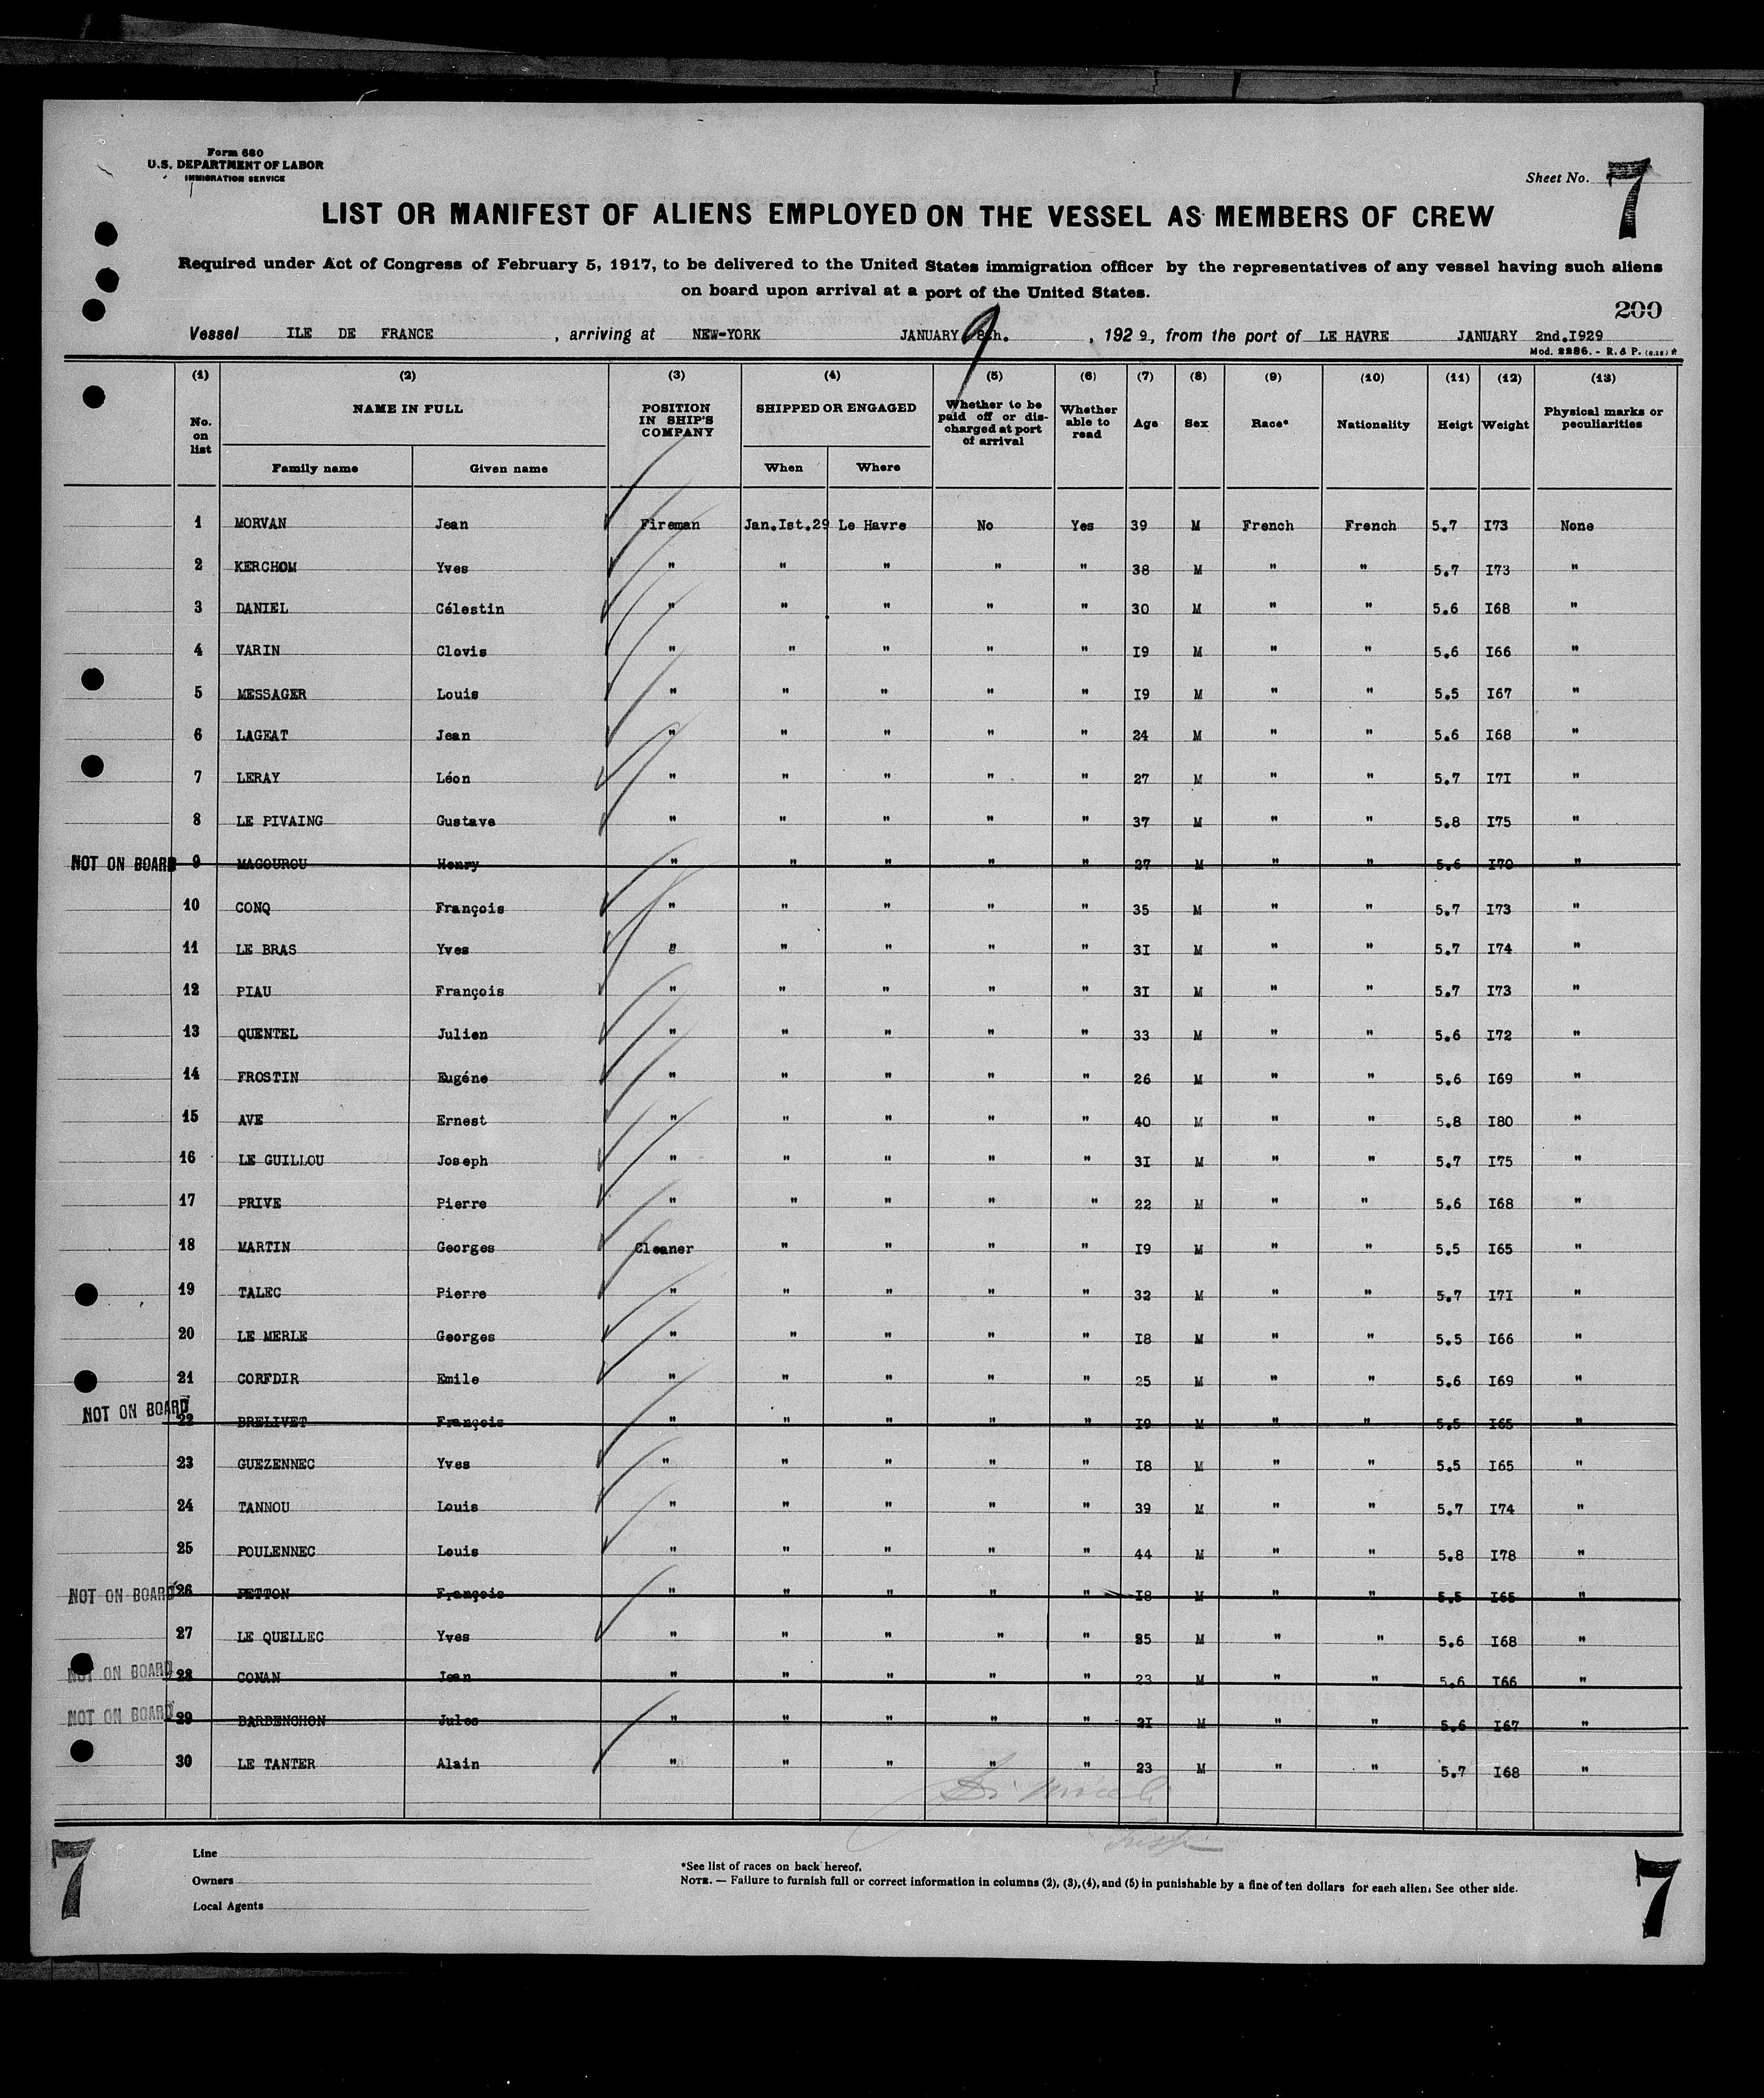 Form 680
U.S. DEPARTMENT OF LABOR
IMMIGRATION SERVICE
Sheet No. 7
LIST OR MANIFEST OF ALIENS EMPLOYED ON THE VESSEL AS MEMBERS OF CREW
Required under Act of Congress of February 5, 1917, to be delivered to the United States immigration officer by the representatives of any vessel having such aliens
on board upon arrival at a port of the United States.
200
Vessel ILE DE FRANCE , arriving at NEW-YORK JANUARY 8th. 9 , 1929, from the port of LE HAVRE JANUARY 2nd.I929
Mod. 2286. - R. & P.
(1) (2) (3) (4) (5) (6) (7) (8) (9) (10) (11) (12) (13)
No. on list NAME IN FULL Family name Given name POSITION IN SHIP'S COMPANY SHIPPED OR ENGAGED When Where Whether to be paid off or discharged at port of arrival Whether able to read Age Sex Race* Nationality Heigt Weight Physical marks or peculiarities
1 MORVAN Jean Fireman Jan.Ist.29 Le Havre No Yes 39 M French French 5.7 I73 None
2 KERCHOM Yves " " " " " 38 M " " 5.7 I73 "
3 DANIEL Célestin " " " " " 30 M " " 5.6 I68 "
4 VARIN Clovis " " " " " I9 M " " 5.6 I66 "
5 MESSAGER Louis " " " " " I9 M " " 5.5 I67 "
6 LAGEAT Jean " " " " " 24 M " " 5.6 I68 "
7 LERAY Léon " " " " " 27 M " " 5.7 I7I "
8 LE PIVAING Gustave " " " " " 37 M " " 5.8 I75 "
NOT ON BOARD 9 MAGOUROU Henry " " " " " 27 M " " 5.6 I70 "
10 CONQ François " " " " " 35 M " " 5.7 I73 "
11 LE BRAS Yves " " " " " 3I M " " 5.7 I74 "
12 PIAU François " " " " " 3I M " " 5.7 I73 "
13 QUENTEL Julien " " " " " 33 M " " 5.6 I72 "
14 FROSTIN Eugéne " " " " " 26 M " " 5.6 I69 "
15 AVE Ernest " " " " " 40 M " " 5.8 I80 "
16 LE GUILLOU Joseph " " " " " 3I M " " 5.7 I75 "
17 PRIVE Pierre " " " " " 22 M " " 5.6 I68 "
18 MARTIN Georges Cleaner " " " " I9 M " " 5.5 I65 "
19 TALEC Pierre " " " " " 32 M " " 5.7 I7I "
20 LE MERLE Georges " " " " " I8 M " " 5.5 I66 "
21 CORFDIR Emile " " " " " 25 M " " 5.6 I69 "
NOT ON BOARD 22 BRELIVET François " " " " " I9 M " " 5.5 I65 "
23 GUEZENNEC Yves " " " " " I8 M " " 5.5 I65 "
24 TANNOU Louis " " " " " 39 M " " 5.7 I74 "
25 POULENNEC Louis " " " " " 44 M " " 5.8 I78 "
NOT ON BOARD 26 PETTON François " " " " " I8 M " " 5.5 I65 "
27 LE QUELLEC Yves " " " " " 25 M " " 5.6 I68 "
NOT ON BOARD 28 CONAN Jean " " " " " 23 M " " 5.6 I66 "
NOT ON BOARD 29 BARBENCHON Jules " " " " " 2I M " " 5.6 I67 "
30 LE TANTER Alain " " " " " 23 M " " 5.7 I68 "
7
Line
Owners
Local Agents
*See list of races on back hereof.
NOTE. — Failure to furnish full or correct information in columns (2), (3), (4), and (5) in punishable by a fine of ten dollars for each alien. See other side.
7